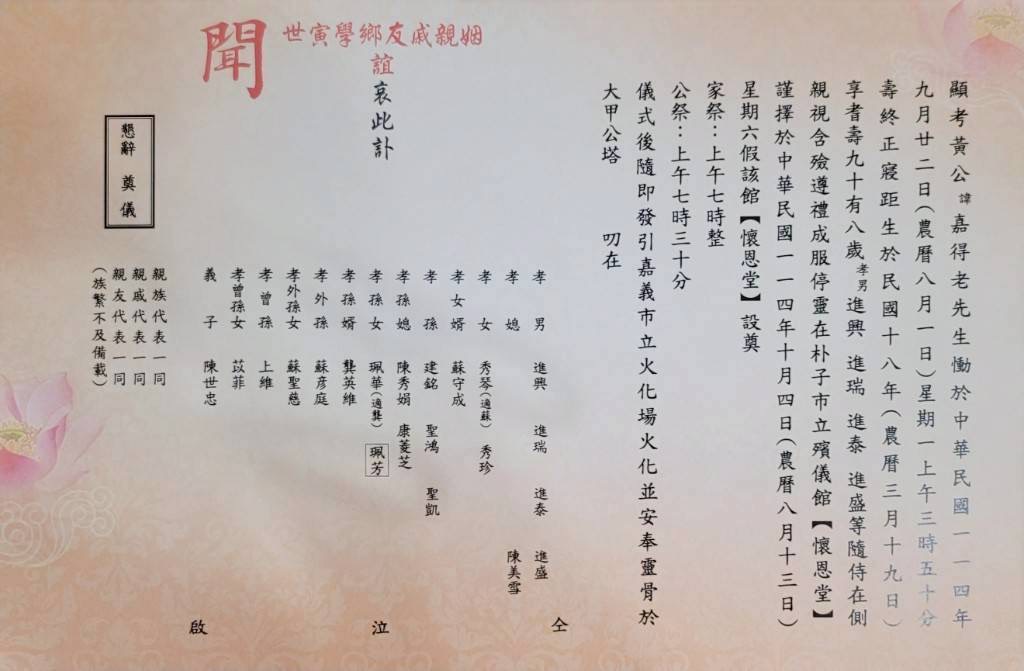 顯考黃公諱嘉得老先生慟於中華民國一一四年
九月廿二日(農曆八月一日)星期一上午三時五十分
壽終正寢距生於民國十八年(農曆三月十九日)
享耆壽九十有八歲孝男進興 進瑞 進泰 進盛等隨侍在側
親視含殮遵禮成服停靈在朴子市立殯儀館【懷恩堂】
謹擇於中華民國一一四年十月四日(農曆八月十三日)
星期六假該館【懷恩堂】設奠
家祭:上午七時整
公祭:上午七時三十分
儀式後隨即發引嘉義市立火化場火化並安奉靈骨於
大甲公塔 叨在
姻親戚友鄉學寅世
誼哀此訃
聞
孝男 進興 進瑞 進泰 進盛
孝媳 陳美雪
孝女 秀琴(適蘇) 秀珍
孝女婿 蘇守成
孝孫 建銘 聖鴻 聖凱
孝孫媳 陳秀娟 康菱芝
孝孫女 珮華(適龔) 珮芳
孝孫婿 龔英維
孝外孫 蘇彥庭
孝外孫女 蘇聖慈
孝曾孫 上維
孝曾孫女 苡菲
義子 陳世忠
親族代表一同
親戚代表一同
親友代表一同
(族繁不及備載)
仝 泣 啟
懇辭 奠儀